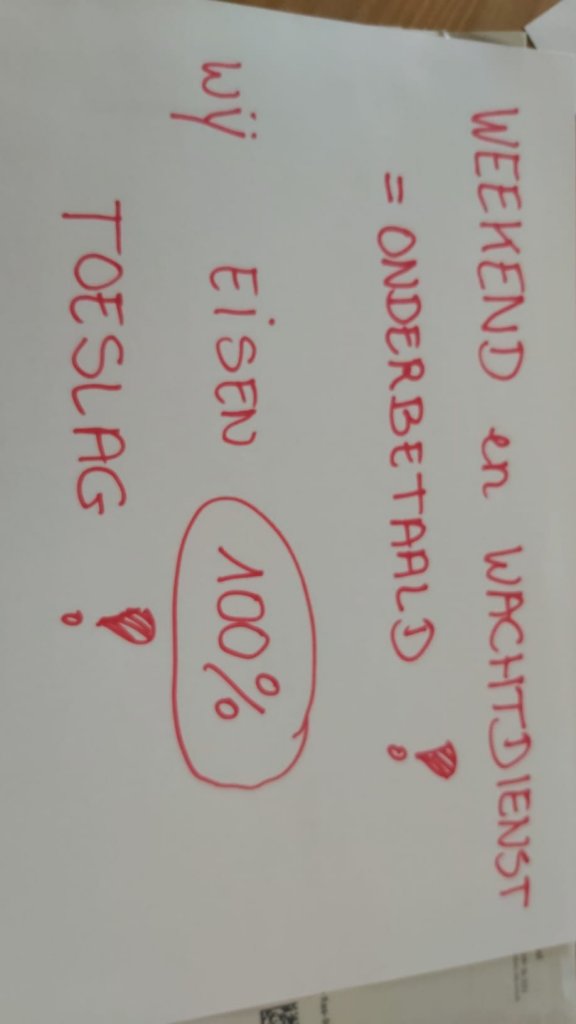 WEEKEND en WACHTDIENST
= ONDERBETAALD !
wij EiSEN 100%
TOESLAG !